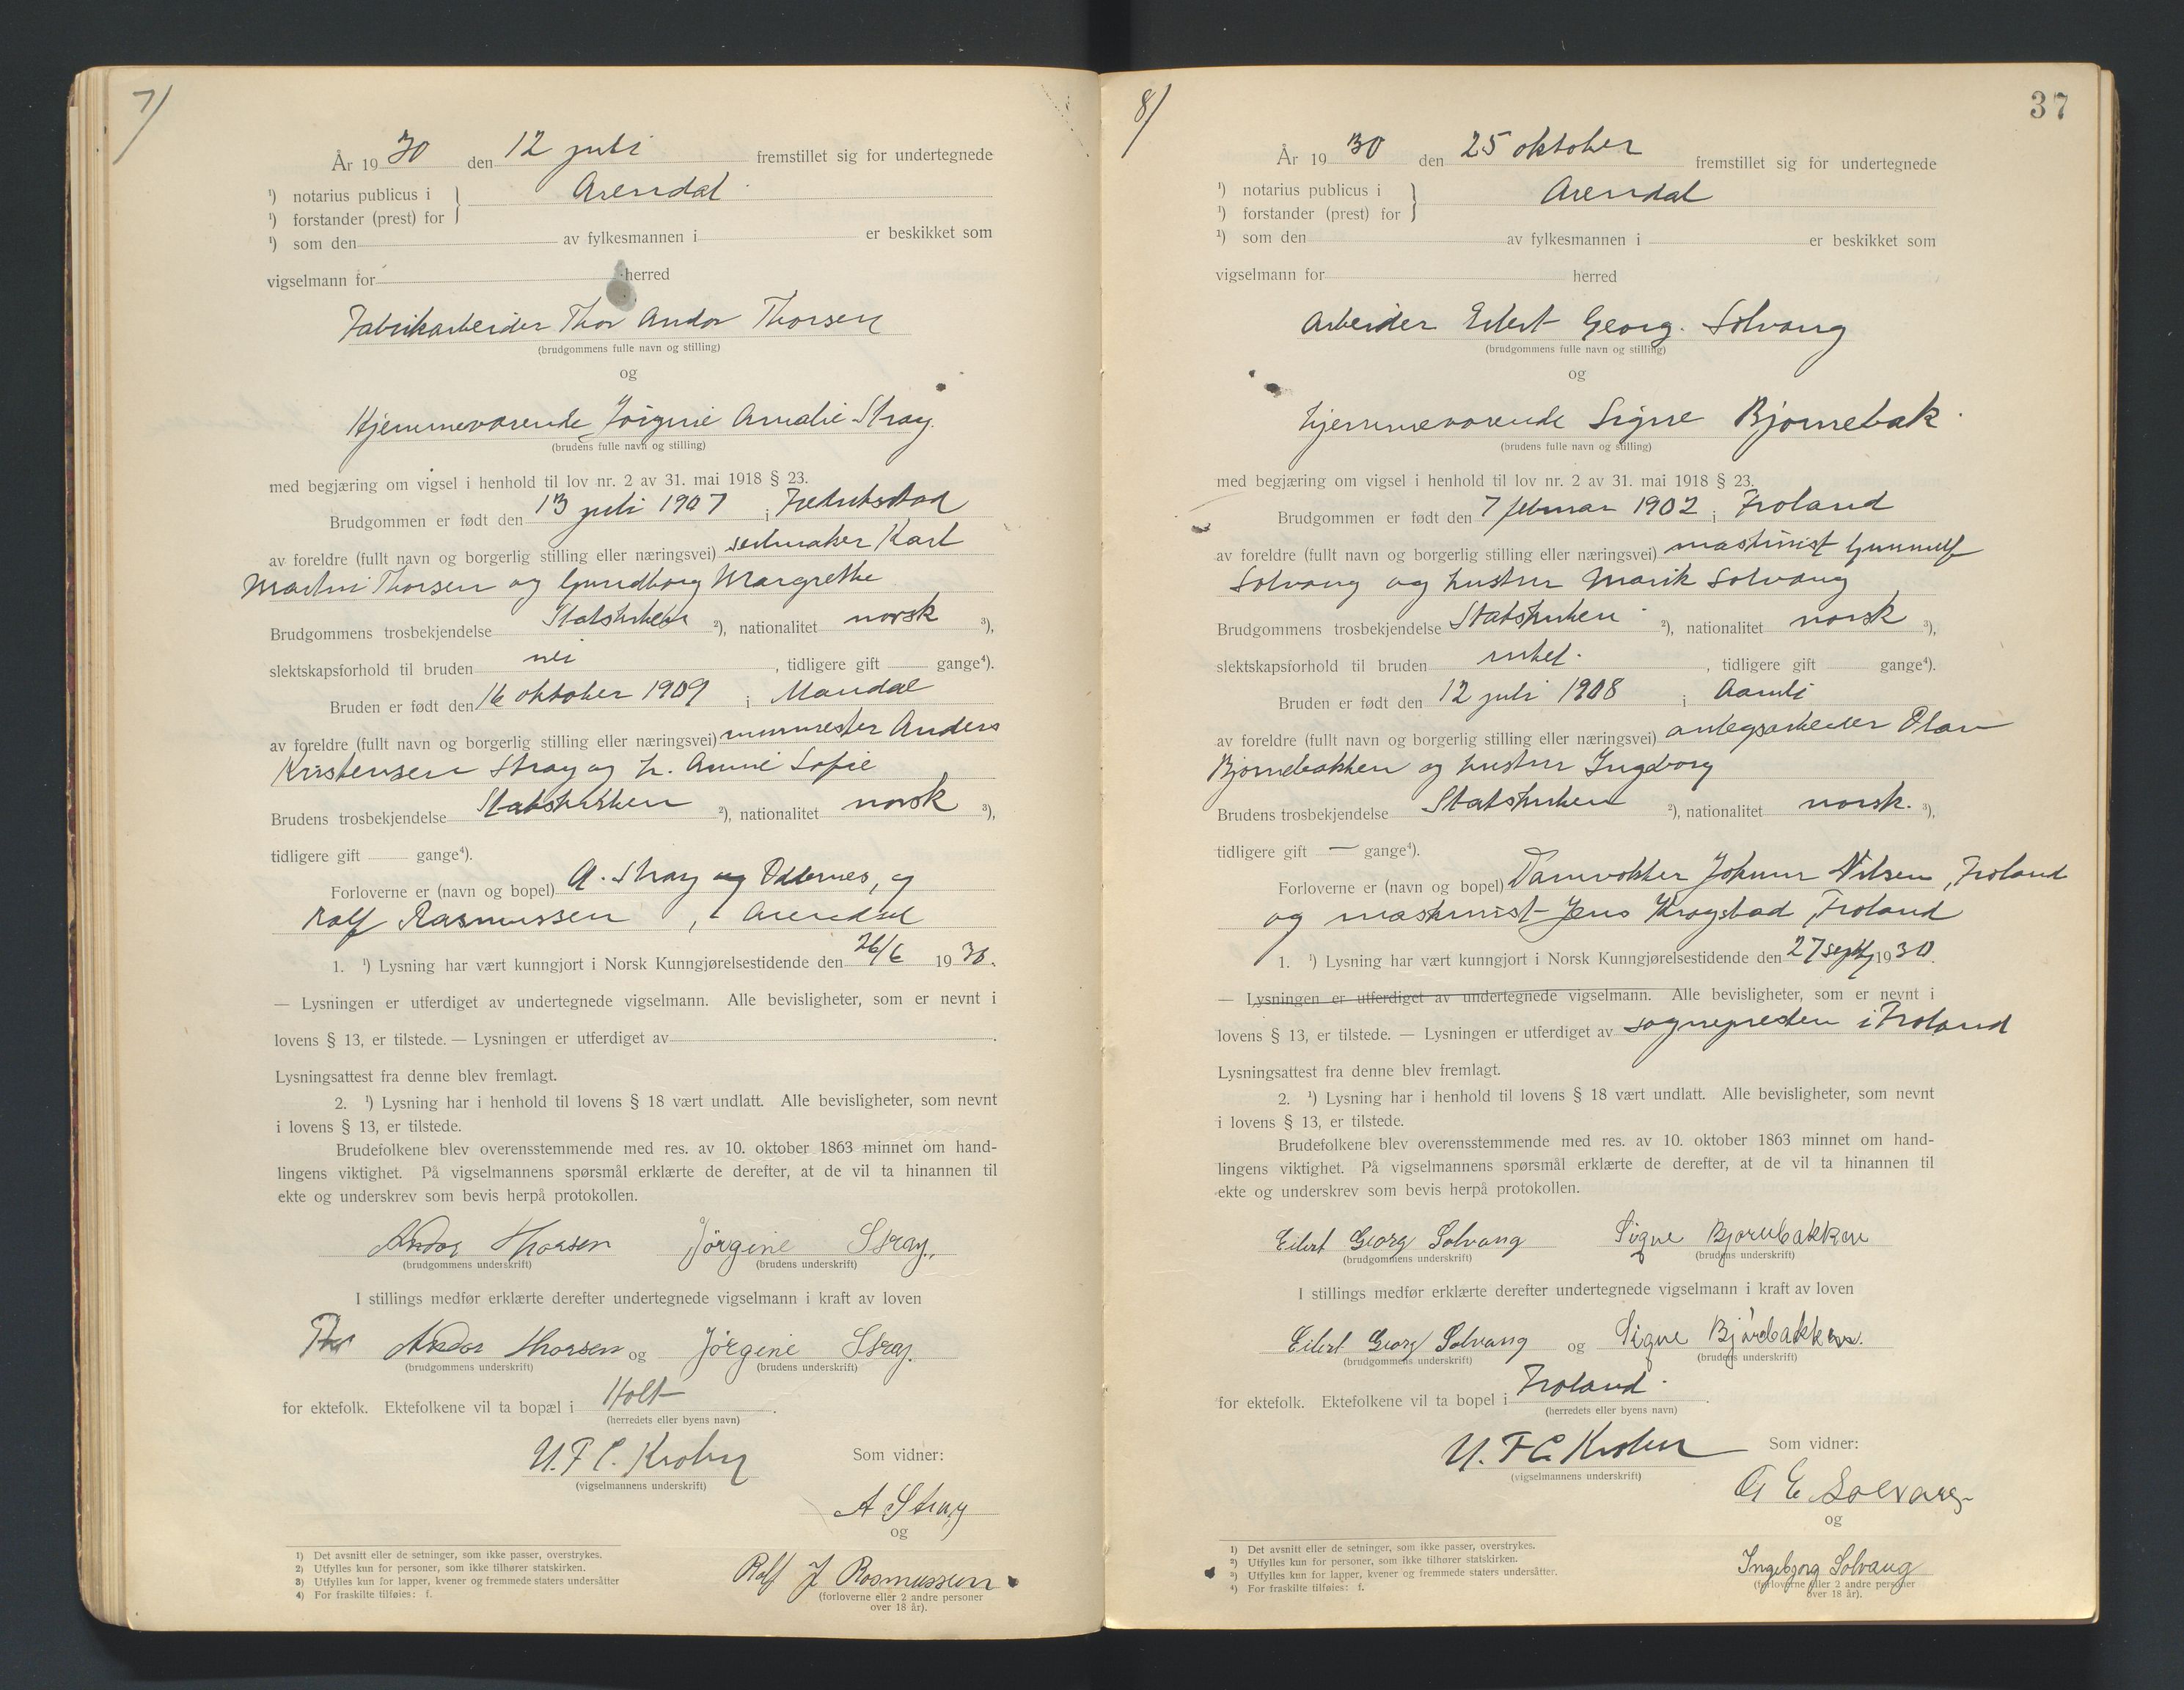 7)
År 1930 den 12 juli fremstillet sig for undertegnede
¹) notarius publicus i } Arendal
¹) forstander (prest) for
¹) som den av fylkesmannen i er beskikket som
vigselmann for herred
Fabrikarbeider Thor Andor Thorsen
(brudgommens fulle navn og stilling)
og
Hjemmeværende Jörgine Amalie Stray.
(brudens fulle navn og stilling)
med begjæring om vigsel i henhold til lov nr. 2 av 31. mai 1918 § 23.
Brudgommen er født den 13 juli 1907 i Fredrikstad
av foreldre (fullt navn og borgerlig stilling eller næringsvei) seilmaker Karl
Martin Thorsen og Gundborg Margrethe
Brudgommens trosbekjendelse Statskirken ²), nationalitet norsk ³),
slektskapsforhold til bruden nei , tidligere gift gange⁴).
Bruden er født den 16 oktober 1909 i Mandal
av foreldre (fullt navn og borgerlig stilling eller næringsvei) murmester Anders
Kristensen Stray og h. Anne Sofie
Brudens trosbekjendelse Statskirken ²), nationalitet norsk ³),
tidligere gift gange⁴).
Forloverne er (navn og bopel) A. Stray og Oddernes, og
Rolf Rasmussen , Arendal
1. ¹) Lysning har vært kunngjort i Norsk Kunngjørelsestidende den 26/6 1930.
— Lysningen er utferdiget av undertegnede vigselmann. Alle bevisligheter, som er nevnt i
lovens § 13, er tilstede. — Lysningen er utferdiget av .
Lysningsattest fra denne blev fremlagt.
2. ¹) Lysning har i henhold til lovens § 18 vært undlatt. Alle bevisligheter, som nevnt
i lovens § 13, er tilstede.
Brudefolkene blev overensstemmende med res. av 10. oktober 1863 minnet om hand-
lingens viktighet. På vigselmannens spørsmål erklærte de derefter, at de vil ta hinannen til
ekte og underskrev som bevis herpå protokollen.
Andor Thorsen Jörgine Stray.
(brudgommens underskrift) (brudens underskrift)
I stillings medfør erklærte derefter undertegnede vigselmann i kraft av loven
Thor Andor Thorsen og Jörgine Stray.
(brudgommens underskrift) (brudens underskrift)
for ektefolk. Ektefolkene vil ta bopæl i Holt .
(herredets eller byens navn)
U. F. C. Krohn Som vidner:
(vigselmannens underskrift)
A Stray
og
Rolf J Rasmussen
(forloverne eller 2 andre personer
over 18 år).
1) Det avsnitt eller de setninger, som ikke passer, overstrykes.
2) Utfylles kun for personer, som ikke tilhører statskirken.
3) Utfylles kun for lapper, kvener og fremmede staters undersåtter
4) For fraskilte tilføies: f.
8)
37
År 1930 den 25 oktober fremstillet sig for undertegnede
¹) notarius publicus i } Arendal
¹) forstander (prest) for
¹) som den av fylkesmannen i er beskikket som
vigselmann for herred
Arbeider Eilert Georg. Solvang
(brudgommens fulle navn og stilling)
og
hjemmeværende Signe Bjørnebak
(brudens fulle navn og stilling)
med begjæring om vigsel i henhold til lov nr. 2 av 31. mai 1918 § 23.
Brudgommen er født den 7 februar 1902 i Froland
av foreldre (fullt navn og borgerlig stilling eller næringsvei) maskinist Gunnulf
Solvang og hustru Marik Solvang
Brudgommens trosbekjendelse Statskirken ²), nationalitet norsk ³),
slektskapsforhold til bruden intet. , tidligere gift gange⁴).
Bruden er født den 12 juli 1908 i Aamli
av foreldre (fullt navn og borgerlig stilling eller næringsvei) anlegsarbeider Olav
Bjørnebakken og hustru Ingeborg
Brudens trosbekjendelse Statskirken ²), nationalitet norsk. ³),
tidligere gift — gange⁴).
Forloverne er (navn og bopel) Damvokter Johnur Nilsen, Froland
og maskinist Jens Krogstad, Froland
1. ¹) Lysning har vært kunngjort i Norsk Kunngjørelsestidende den 27 septbr 1930.
— Lysningen er utferdiget av undertegnede vigselmann. Alle bevisligheter, som er nevnt i
lovens § 13, er tilstede. — Lysningen er utferdiget av sognepresten i Froland
Lysningsattest fra denne blev fremlagt.
2. ¹) Lysning har i henhold til lovens § 18 vært undlatt. Alle bevisligheter, som nevnt
i lovens § 13, er tilstede.
Brudefolkene blev overensstemmende med res. av 10. oktober 1863 minnet om hand-
lingens viktighet. På vigselmannens spørsmål erklærte de derefter, at de vil ta hinannen til
ekte og underskrev som bevis herpå protokollen.
Eilert Georg Solvang Signe Bjørnbakken
(brudgommens underskrift) (brudens underskrift)
I stillings medfør erklærte derefter undertegnede vigselmann i kraft av loven
Eilert Georg Solvang og Signe Bjørbakken.
(brudgommens underskrift) (brudens underskrift)
for ektefolk. Ektefolkene vil ta bopel i Froland .
(herredets eller byens navn)
U. F C. Krohn Som vidner:
(vigselmannens underskrift)
G E Solvang
og
Ingebjorg Solvang
(forloverne eller 2 andre personer
over 18 år).
1) Det avsnitt eller de setninger, som ikke passer, overstrykes.
2) Utfylles kun for personer, som ikke tilhører statskirken.
3) Utfylles kun for lapper, kvener og fremmede staters undersåtter.
4) For fraskilte tilføies: f.